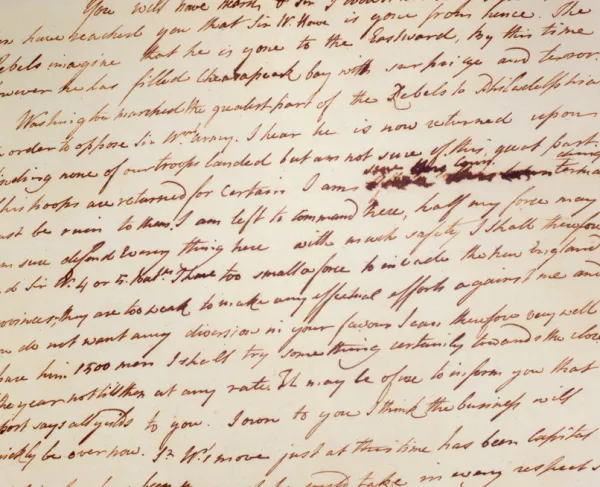 You will have heard, Dr Sir I doubt
have reached you that Sir W. Howe is gone from hence. The
Rebels imagine that he is gone to the Eastward, By this time
however he has filled Chesapeak bay with surprize and terror.
Washington marched the greatest part of the Rebels to Philadelphia
in order to oppose Sir Wm's army. I hear he is now returned upon
finding none of our troops landed but am not sure of this, great part
of his troops are returned for certain I am sure this
must be ruin to them. I am left to command here, half my force may
am sure defend every thing here with much safety I shall therefore
Sir W. 4 or 5 Batns. I have too small a force to invade the New England
provinces, they are too weak to make any effectual efforts against me and
you do not want any diversion in your favour I can therefore very well
spare him 1500 men I shall try something certainly towards the close
the year not till then at any rate. It may be of use to inform you that
report says all yields to you. I own to you I think the business will
quickly be over now. Sr. W's move just at this time has been capital
take in every respect